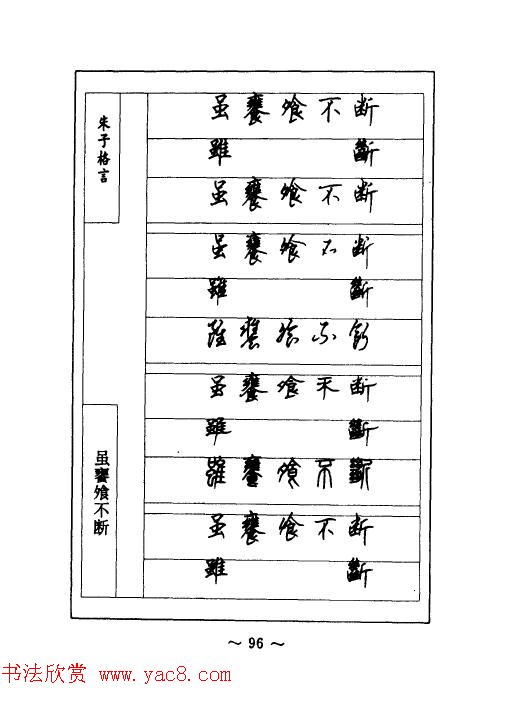 朱子格言
虽饔飧不断
虽饔飧不断
雖 斷
虽饔飧不断
虽饔飧不断
雖 斷
雖饔飧不断
虽饔飧不断
雖 斷
雖饔飧不斷
虽饔飧不断
雖 斷
～ 96 ～
书法欣赏 www.yac8.com